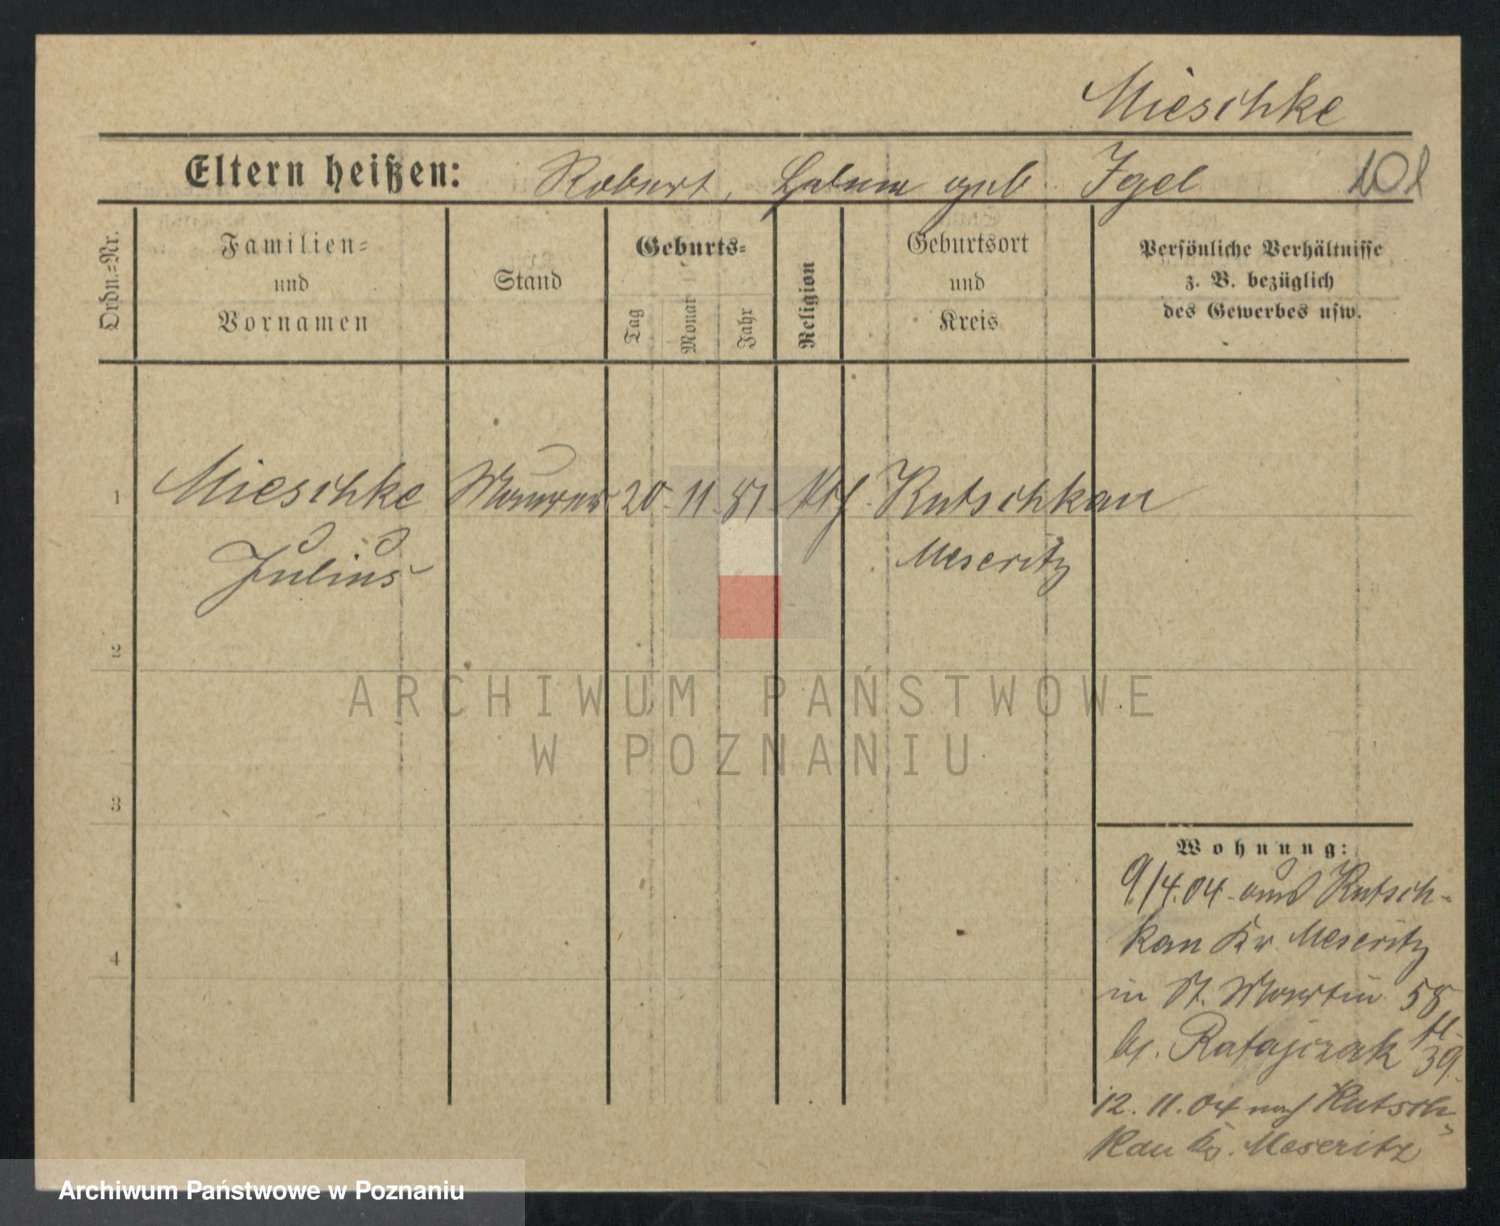 Mieschke
Eltern heißen: Robert, geb. Igel 101
Ordn.=Nr.
Familien=
und
Vornamen
Stand
Geburts=
Tag
Monat
Jahr
Religion
Geburtsort
und
Kreis
Persönliche Verhältnisse
z. B. bezüglich
des Gewerbes usw.
1 Mieschke Maurer 20. 11. 81 Kutschkau
Julius Meseritz
2
3
4
ARCHIWUM PAŃSTWOWE
W POZNANIU
Wohnung:
9/4.04 aus Kutsch-
kau Kr. Meseritz
in St. Martin 58
bei Ratajczak 39
12. 11. 04 nach Kutsch-
kau Kr. Meseritz
Archiwum Państwowe w Poznaniu